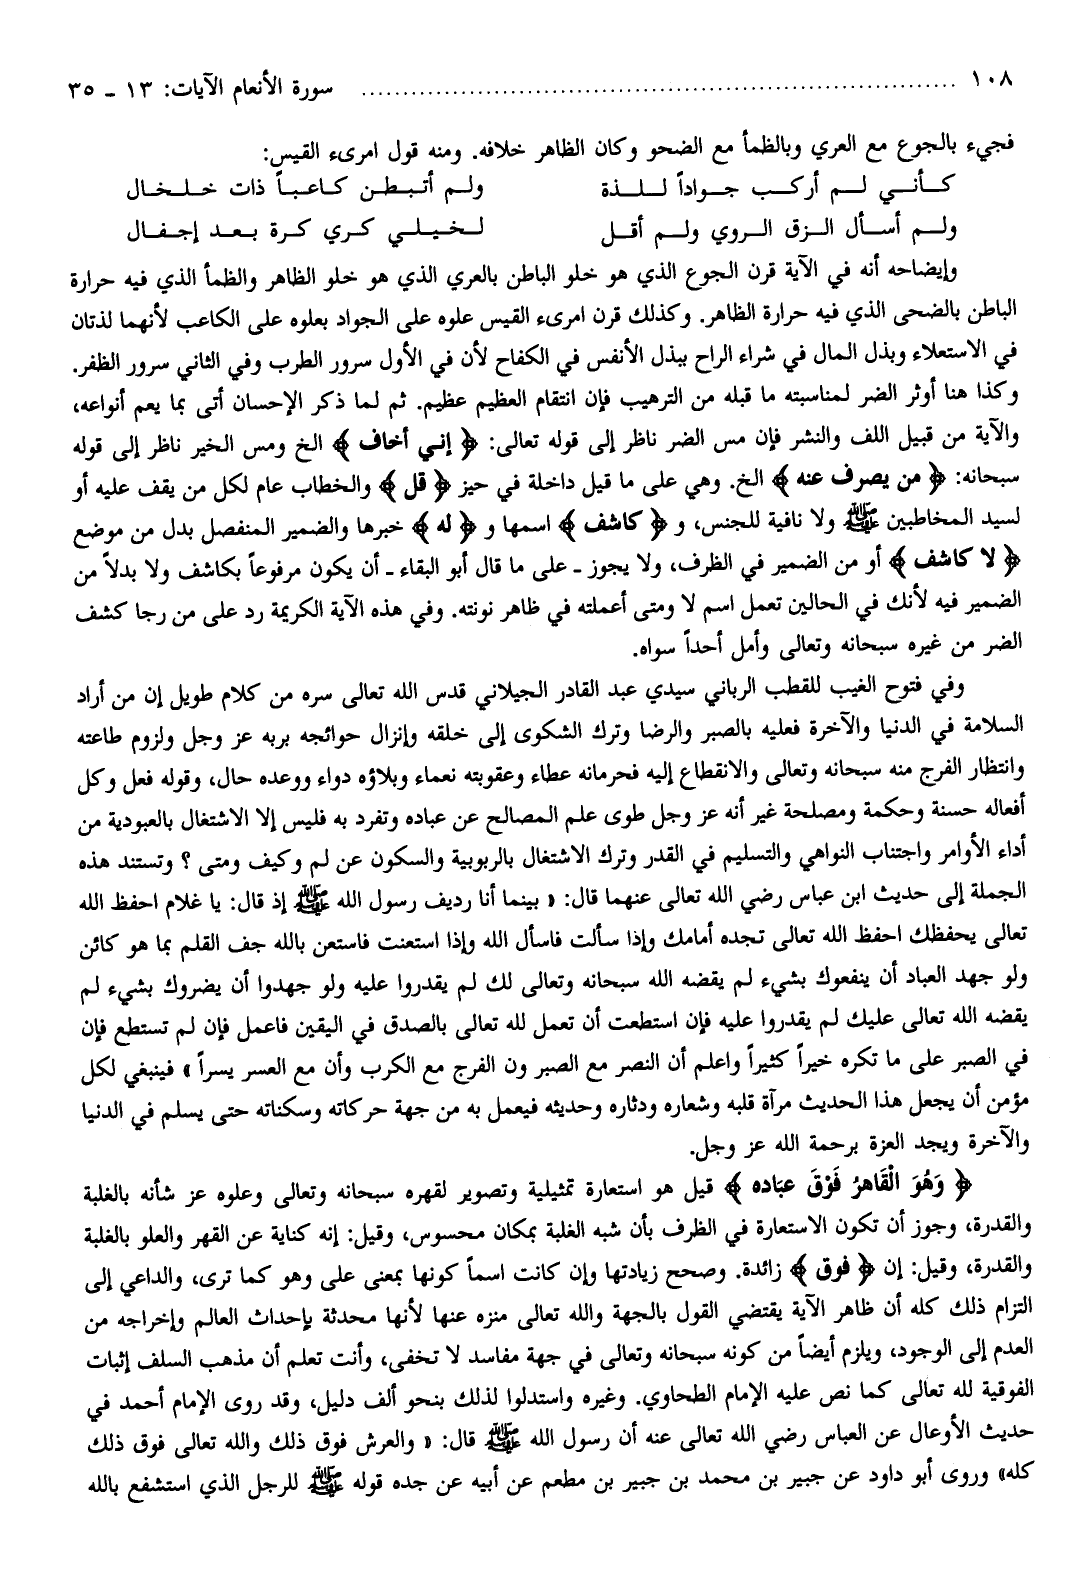 ١٠٨ ............ سورة الأنعام الآيات: ١٣ ـ ٣٥
فجيء بالجوع مع العري وبالظمأ مع الضحو وكان الظاهر خلافه. ومنه قول امرىء القيس:
كأني لم أركب جواداً للذة ولم أتبطن كاعباً ذات خلخال
ولم أسأل الزق الروي ولم أقل لخيلي كري كرة بعد إجفال
وإيضاحه أنه في الآية قرن الجوع الذي هو خلو الباطن بالعري الذي هو خلو الظاهر والظمأ الذي فيه حرارة
الباطن بالضحى الذي فيه حرارة الظاهر. وكذلك قرن امرىء القيس علوه على الجواد بعلوه على الكاعب لأنهما لذتان
في الاستعلاء وبذل المال في شراء الراح ببذل الأنفس في الكفاح لأن في الأول سرور الطرب وفي الثاني سرور الظفر.
وكذا هنا أوثر الضر لمناسبته ما قبله من الترهيب فإن انتقام العظيم عظيم. ثم لما ذكر الإحسان أتى بما يعم أنواعه،
والآية من قبيل اللف والنشر فإن مس الضر ناظر إلى قوله تعالى: ﴿ إني أخاف ﴾ الخ ومس الخير ناظر إلى قوله
سبحانه: ﴿ من يصرف عنه ﴾ الخ. وهي على ما قيل داخلة في حيز ﴿ قل ﴾ والخطاب عام لكل من يقف عليه أو
لسيد المخاطبين ﷺ ولا نافية للجنس، و ﴿ كاشف ﴾ اسمها و ﴿ له ﴾ خبرها والضمير المنفصل بدل من موضع
﴿ لا كاشف ﴾ أو من الضمير في الظرف، ولا يجوز ـ على ما قال أبو البقاء ـ أن يكون مرفوعاً بكاشف ولا بدلاً من
الضمير فيه لأنك في الحالين تعمل اسم لا ومتى أعملته في ظاهر نونته. وفي هذه الآية الكريمة رد على من رجا كشف
الضر من غيره سبحانه وتعالى وأمل أحداً سواه.
وفي فتوح الغيب للقطب الرباني سيدي عبد القادر الجيلاني قدس الله تعالى سره من كلام طويل إن من أراد
السلامة في الدنيا والآخرة فعليه بالصبر والرضا وترك الشكوى إلى خلقه وإنزال حوائجه بربه عز وجل ولزوم طاعته
وانتظار الفرج منه سبحانه وتعالى والانقطاع إليه فحرمانه عطاء وعقوبته نعماء وبلاؤه دواء ووعده حال، وقوله فعل وكل
أفعاله حسنة وحكمة ومصلحة غير أنه عز وجل طوى علم المصالح عن عباده وتفرد به فليس إلا الاشتغال بالعبودية من
أداء الأوامر واجتناب النواهي والتسليم في القدر وترك الاشتغال بالربوبية والسكون عن لم وكيف ومتى ؟ وتستند هذه
الجملة إلى حديث ابن عباس رضي الله تعالى عنهما قال: « بينما أنا رديف رسول الله ﷺ إذ قال: يا غلام احفظ الله
تعالى يحفظك احفظ الله تعالى تجده أمامك وإذا سألت فاسأل الله وإذا استعنت فاستعن بالله جف القلم بما هو كائن
ولو جهد العباد أن ينفعوك بشيء لم يقضه الله سبحانه وتعالى لك لم يقدروا عليه ولو جهدوا أن يضروك بشيء لم
يقضه الله تعالى عليك لم يقدروا عليه فإن استطعت أن تعمل لله تعالى بالصدق في اليقين فاعمل فإن لم تستطع فإن
في الصبر على ما تكره خيراً كثيراً واعلم أن النصر مع الصبر ون الفرج مع الكرب وأن مع العسر يسراً » فينبغي لكل
مؤمن أن يجعل هذا الحديث مرآة قلبه وشعاره ودثاره وحديثه فيعمل به من جهة حركاته وسكناته حتى يسلم في الدنيا
والآخرة ويجد العزة برحمة الله عز وجل.
﴿ وَهُوَ الْقَاهرُ فَوْقَ عبَاده ﴾ قيل هو استعارة تمثيلية وتصوير لقهره سبحانه وتعالى وعلوه عز شأنه بالغلبة
والقدرة، وجوز أن تكون الاستعارة في الظرف بأن شبه الغلبة بمكان محسوس، وقيل: إنه كناية عن القهر والعلو بالغلبة
والقدرة، وقيل: إن ﴿ فوق ﴾ زائدة. وصحح زيادتها وإن كانت اسماً كونها بمعنى على وهو كما ترى، والداعي إلى
التزام ذلك كله أن ظاهر الآية يقتضي القول بالجهة والله تعالى منزه عنها لأنها محدثة بإحداث العالم وإخراجه من
العدم إلى الوجود، ويلزم أيضاً من كونه سبحانه وتعالى في جهة مفاسد لا تخفى، وأنت تعلم أن مذهب السلف إثبات
الفوقية لله تعالى كما نص عليه الإمام الطحاوي. وغيره واستدلوا لذلك بنحو ألف دليل، وقد روى الإمام أحمد في
حديث الأوعال عن العباس رضي الله تعالى عنه أن رسول الله ﷺ قال: « والعرش فوق ذلك والله تعالى فوق ذلك
كله» وروى أبو داود عن جبير بن محمد بن جبير بن مطعم عن أبيه عن جده قوله ﷺ للرجل الذي استشفع بالله